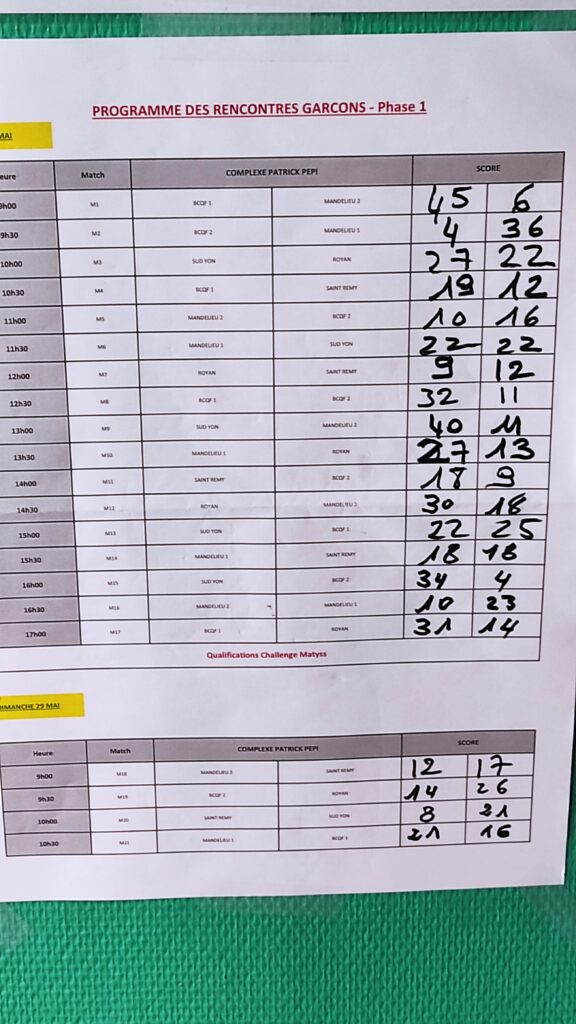 PROGRAMME DES RENCONTRES GARCONS - Phase 1
MAI
eure Match COMPLEXE PATRICK PEPI SCORE
9h00 M1 BCQF 1 MANDELIEU 2 45 6
9h30 M2 BCQF 2 MANDELIEU 1 4 36
10h00 M3 SUD YON ROYAN 27 22
10h30 M4 BCQF 1 SAINT REMY 19 12
11h00 M5 MANDELIEU 2 BCQF 2 10 16
11h30 M6 MANDELIEU 1 SUD YON 22 22
12h00 M7 ROYAN SAINT REMY 9 12
12h30 M8 BCQF 1 BCQF 2 32 11
13h00 M9 SUD YON MANDELIEU 2 40 11
13h30 M10 MANDELIEU 1 ROYAN 27 13
14h00 M11 SAINT REMY BCQF 2 18 9
14h30 M12 ROYAN MANDELIEU 2 30 18
15h00 M13 SUD YON BCQF 1 22 25
15h30 M14 MANDELIEU 1 SAINT REMY 18 18
16h00 M15 SUD YON BCQF 2 34 4
16h30 M16 MANDELIEU 2 MANDELIEU 1 10 23
17h00 M17 BCQF 1 ROYAN 31 14
Qualifications Challenge Matyss
DIMANCHE 29 MAI
Heure Match COMPLEXE PATRICK PEPI SCORE
9h00 M18 MANDELIEU 2 SAINT REMY 12 17
9h30 M19 BCQF 2 ROYAN 14 26
10h00 M20 SAINT REMY SUD YON 8 21
10h30 M21 MANDELIEU 1 BCQF 1 21 16